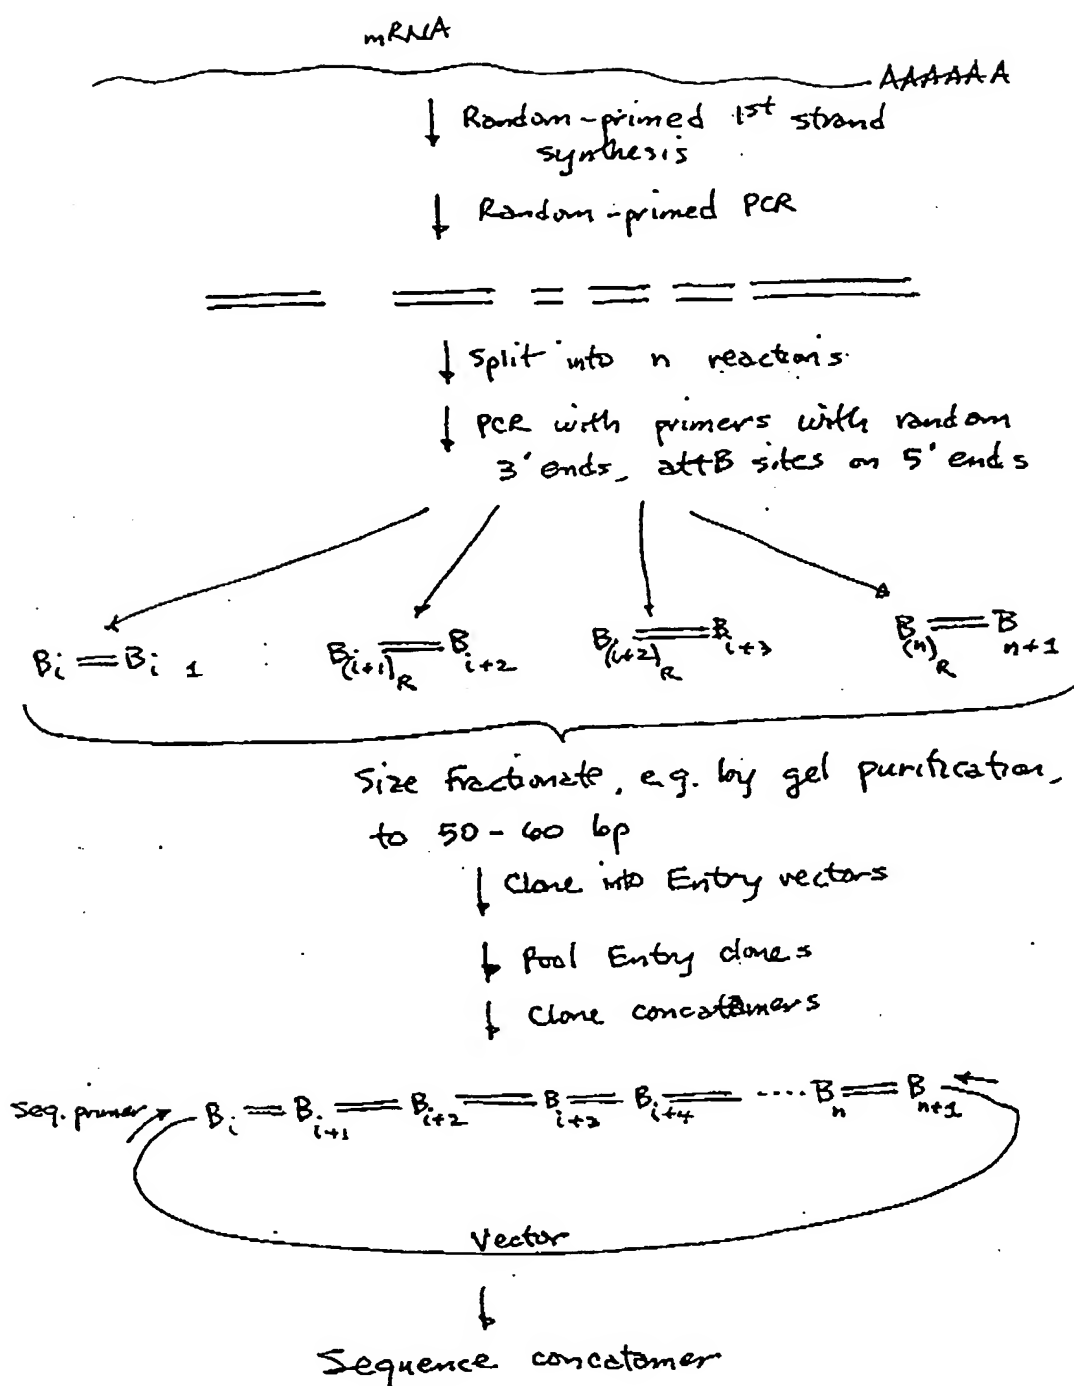 mRNA
AAAAAA
Random-primed 1st strand
synthesis
Random-primed PCR
Split into n reactions.
PCR with primers with random
3' ends, attB sites on 5' ends
Bi = Bi 1 B(i+1)R = Bi+2 B(i+2)R = Bi+3 B(n)R = Bn+1
Size fractionate, e.g. by gel purification,
to 50-60 bp
Clone into Entry vectors
Pool Entry clones
Clone concatamers
Seq. primer Bi = Bi+1 = Bi+2 = Bi+3 = Bi+4 = .... Bn = Bn+1
Vector
Sequence concatomer